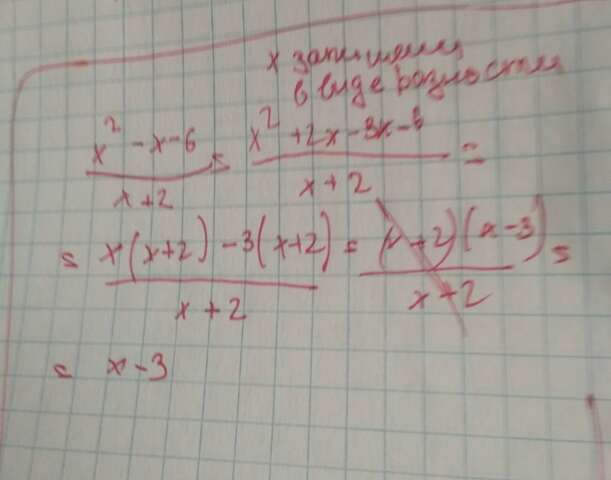 x запишем
в виде разности
x² - x - 6 / x + 2 = x² + 2x - 3x - 6 / x + 2 =
= x(x+2) - 3(x+2) / x + 2 = (x+2)(x-3) / x+2 =
= x - 3